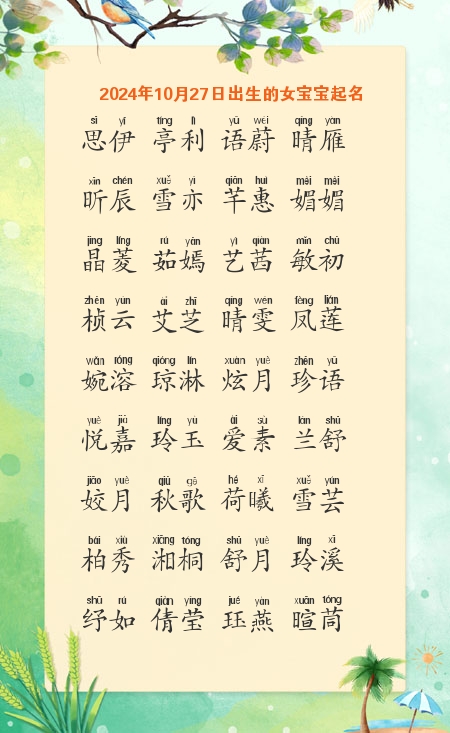 2024年10月27日出生的女宝宝起名
sī yī tíng lì yǔ wèi qíng yàn
思伊 亭利 语蔚 晴雁
xīn chén xuě yì qiān huì mèi mèi
昕辰 雪亦 芊惠 媚媚
jīng líng rú yān yì qiàn mǐn chū
晶菱 茹嫣 艺茜 敏初
zhēn yún ài zhī qíng wén fèng lián
桢云 艾芝 晴雯 凤莲
wǎn róng qióng lín xuàn yuè zhēn yǔ
婉溶 琼淋 炫月 珍语
yuè jiā líng yù ài sù lán shū
悦嘉 玲玉 爱素 兰舒
jiāo yuè qiū gē hé xī xuě yún
姣月 秋歌 荷曦 雪芸
bǎi xiù xiāng tóng shū yuè líng xī
柏秀 湘桐 舒月 玲溪
shū rú qiàn yíng jué yàn xuān tóng
纾如 倩莹 珏燕 暄茼